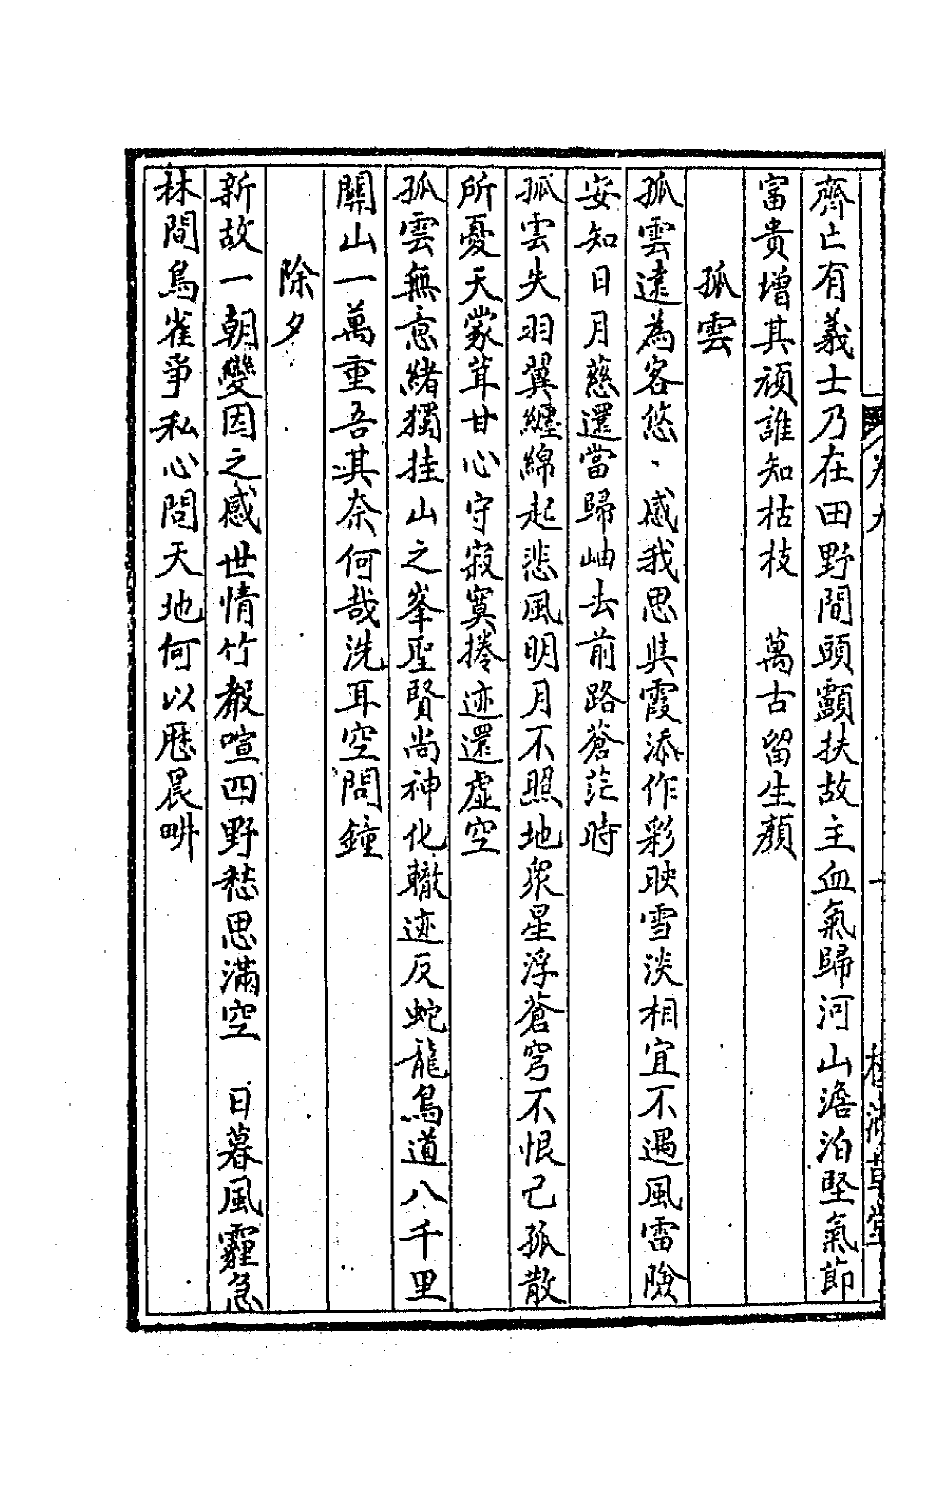 齊亡有義士乃在田野間頭顱扶故主血氣歸河山澹泊堅氣節
富貴增其頑誰知枯枝 萬古留生顏
孤雲
孤雲遠為客悠、感我思與霞添作彩映雪淡相宜不遇風雷險
安知日月慈還當歸岫去前路蒼茫時
孤雲失羽翼纏綿起悲風明月不照地衆星浮蒼穹不恨己孤散
所憂天蒙茸甘心守寂寞捲迹還虛空
孤雲無意緒獨挂山之峯聖賢尚神化轍迹反蛇龍鳥道八千里
關山一萬重吾淇奈何哉洗耳空問鐘
除夕
新故一朝變因之感世情竹報喧四野愁思滿空 日暮風霾急
林間鳥雀爭私心問天地何以歷晨
卷九
草堂